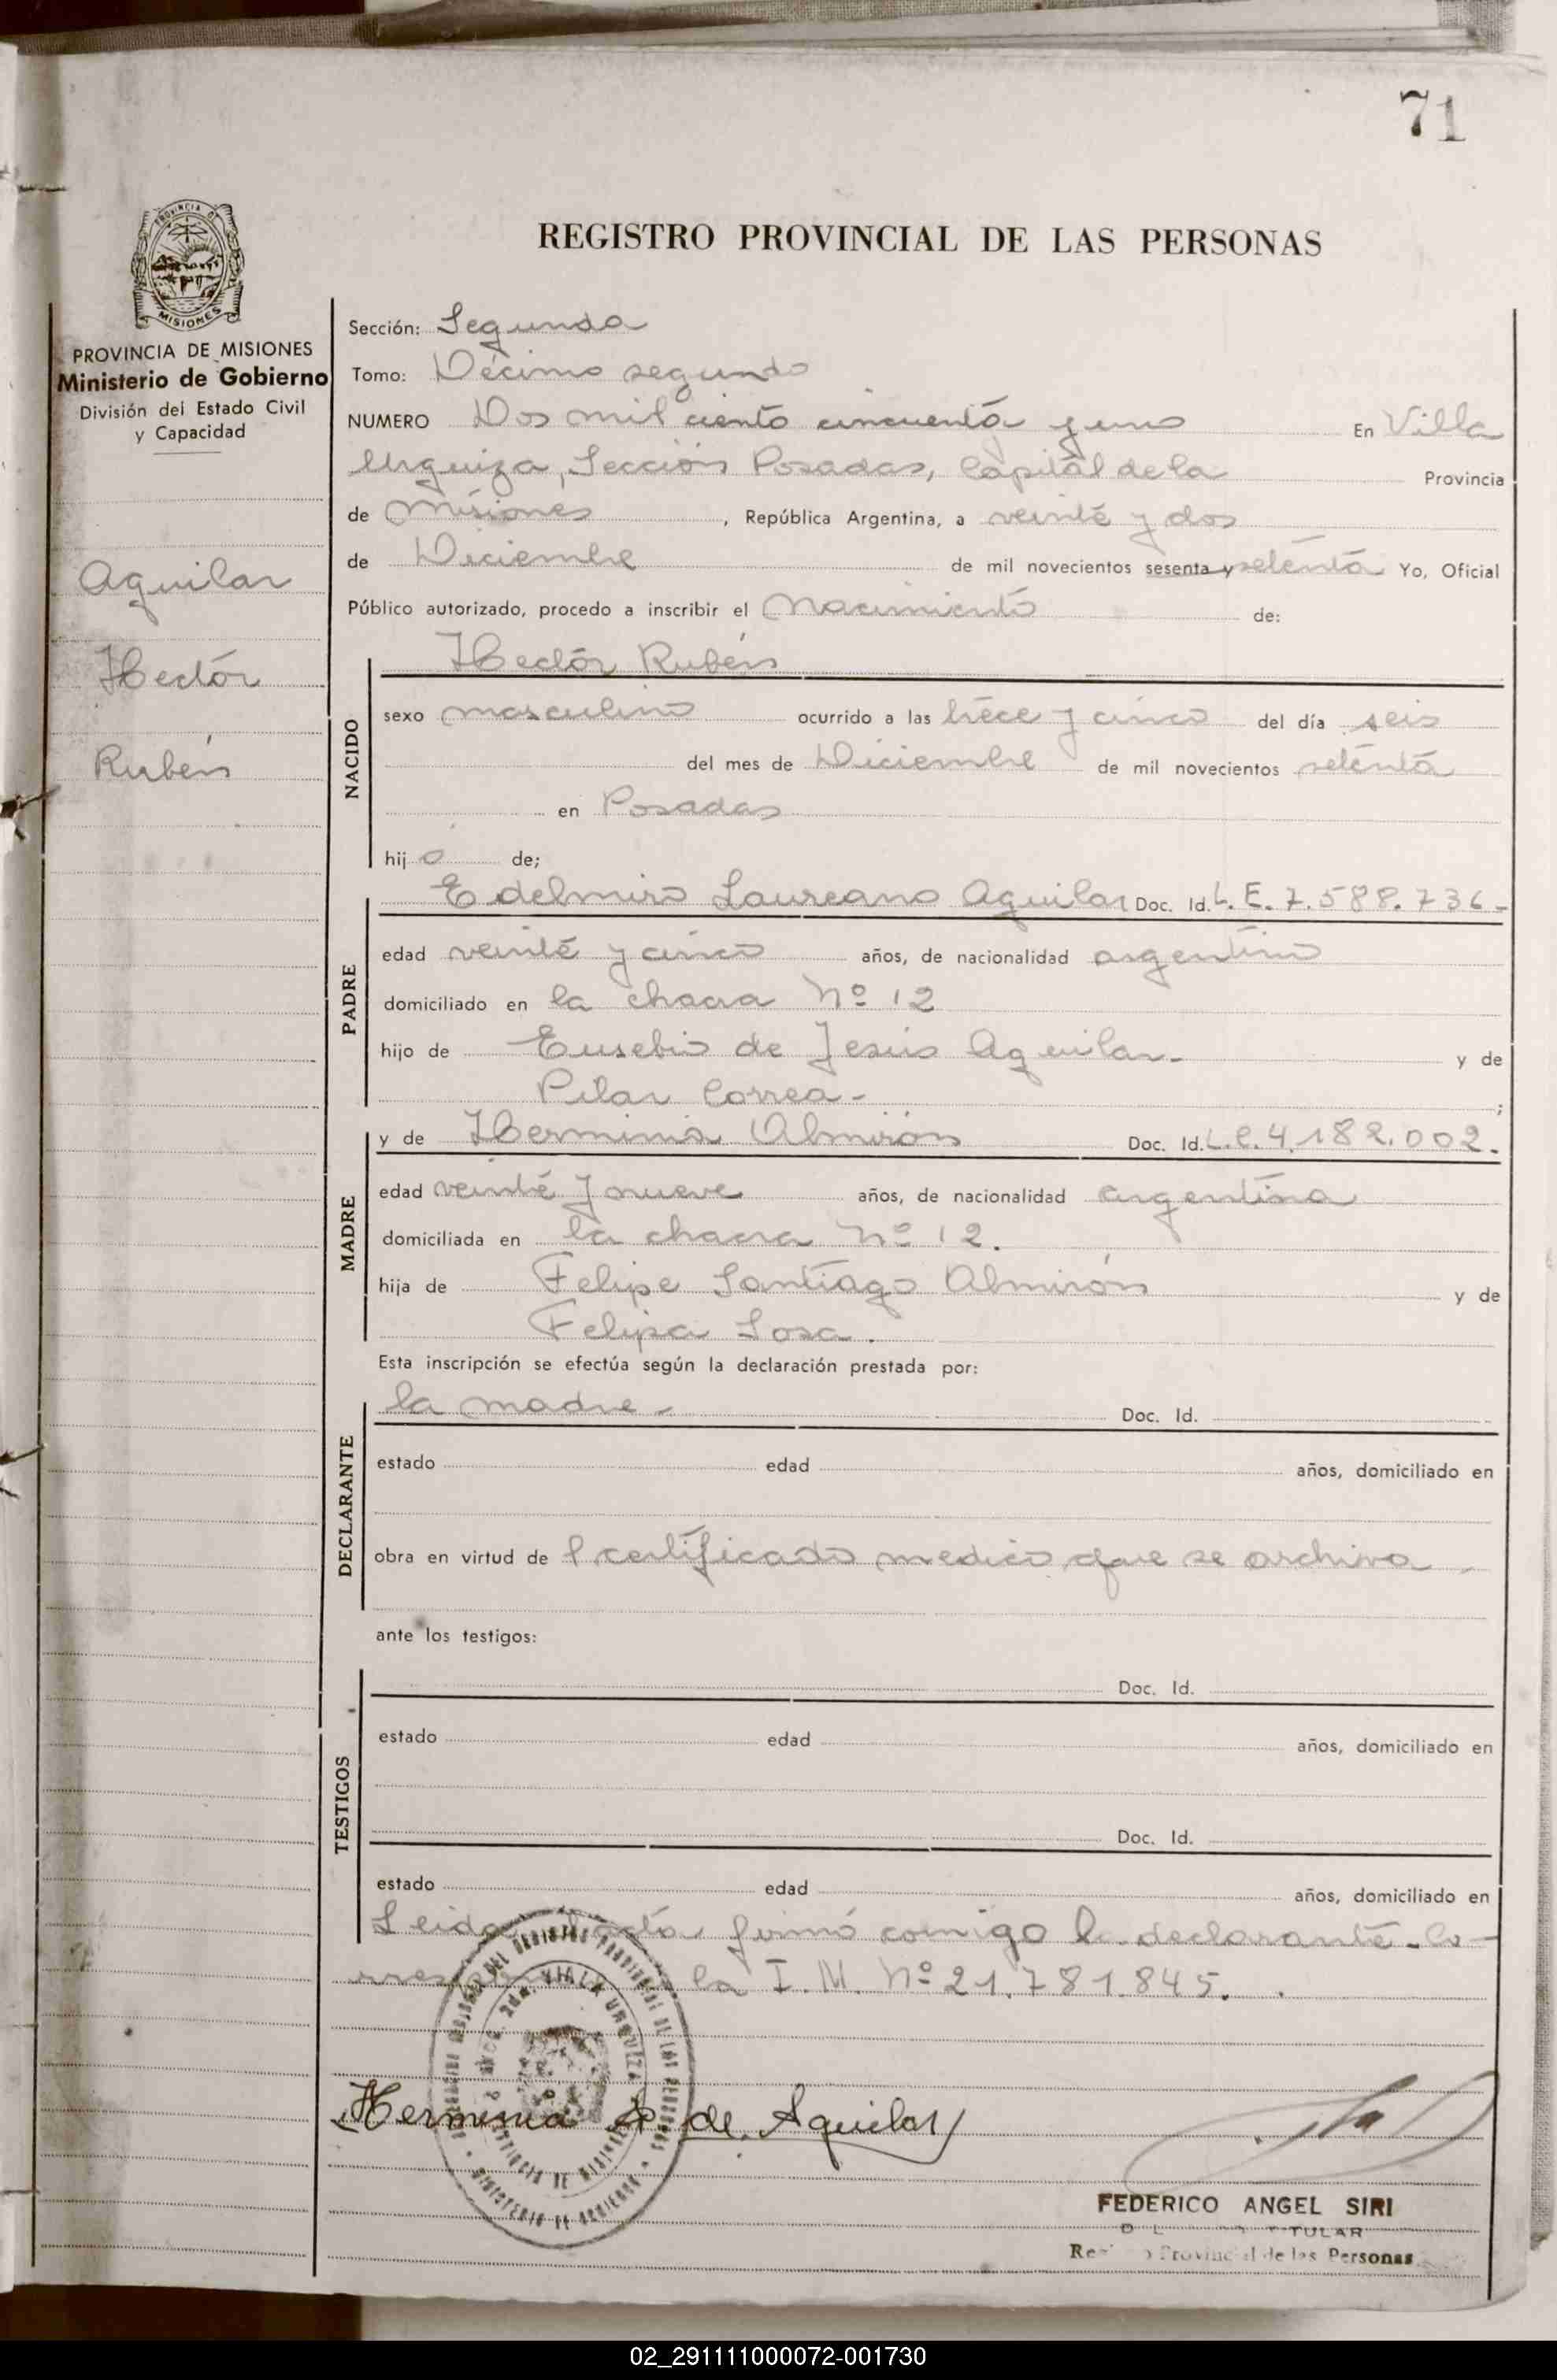 71
PROVINCIA DE
MISIONES
REGISTRO PROVINCIAL DE LAS PERSONAS
PROVINCIA DE MISIONES
Ministerio de Gobierno
División del Estado Civil
y Capacidad
Aguilar
Hectór
Rubén
Sección: Segunda
Tomo: Décimo segundo
NUMERO Dos mil ciento cincuenta y uno En Villa
Urquiza, Sección Posadas, Capital de la Provincia
de Misiones, República Argentina, a veinte y dos
de Diciembre de mil novecientos sesenta y setenta Yo, Oficial
Público autorizado, procedo a inscribir el Nacimiento de:
Hectór Rubén
NACIDO
sexo masculino ocurrido a las trece y cinco del día seis
del mes de Diciembre de mil novecientos setenta
en Posadas
hijo de;
Edelmiro Laureano Aguilar Doc. Id. L.E. 7.588.736-
PADRE
edad veinte y cinco años, de nacionalidad argentino
domiciliado en la chacra Nº 12
hijo de Eusebio de Jesús Aguilar- y de
Pilar Correa- ;
y de Herminia Almirón Doc. Id. L.C. 4.182.002.
MADRE
edad veinte y nueve años, de nacionalidad argentina
domiciliada en la chacra Nº 12.
hija de Felipe Santiago Almirón y de
Felipa Sosa.
Esta inscripción se efectúa según la declaración prestada por:
la madre- Doc. Id.
DECLARANTE
estado edad años, domiciliado en
obra en virtud de certificado medico que se archiva
ante los testigos:
TESTIGOS
Doc. Id.
estado edad años, domiciliado en
Doc. Id.
estado edad años, domiciliado en
Leida acta firmó comigo la declarante-Co-
la I.M. Nº 21.781.845.
VILLA URQUIZA
PROVINCIA DE MISIONES
MINISTERIO DE GOBIERNO
Herminia A de Aguilar
FEDERICO ANGEL SIRI
TITULAR
Provincial de las Personas
02_291111000072-001730